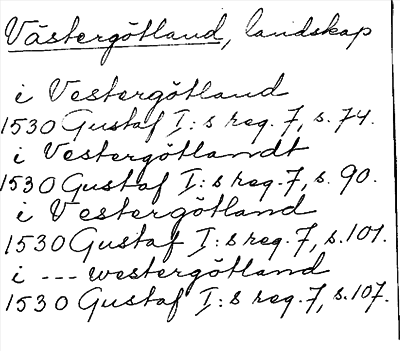 Västergötland, landskap
i Vestergötland
1530 Gustaf I:s reg. 7, s. 74.
i Vestergötlandt
1530 Gustaf I:s reg. 7, s. 90.
i Vestergötland
1530 Gustaf I:s reg. 7, s. 101.
i --- westergötland
1530 Gustaf I:s reg. 7, s. 107.